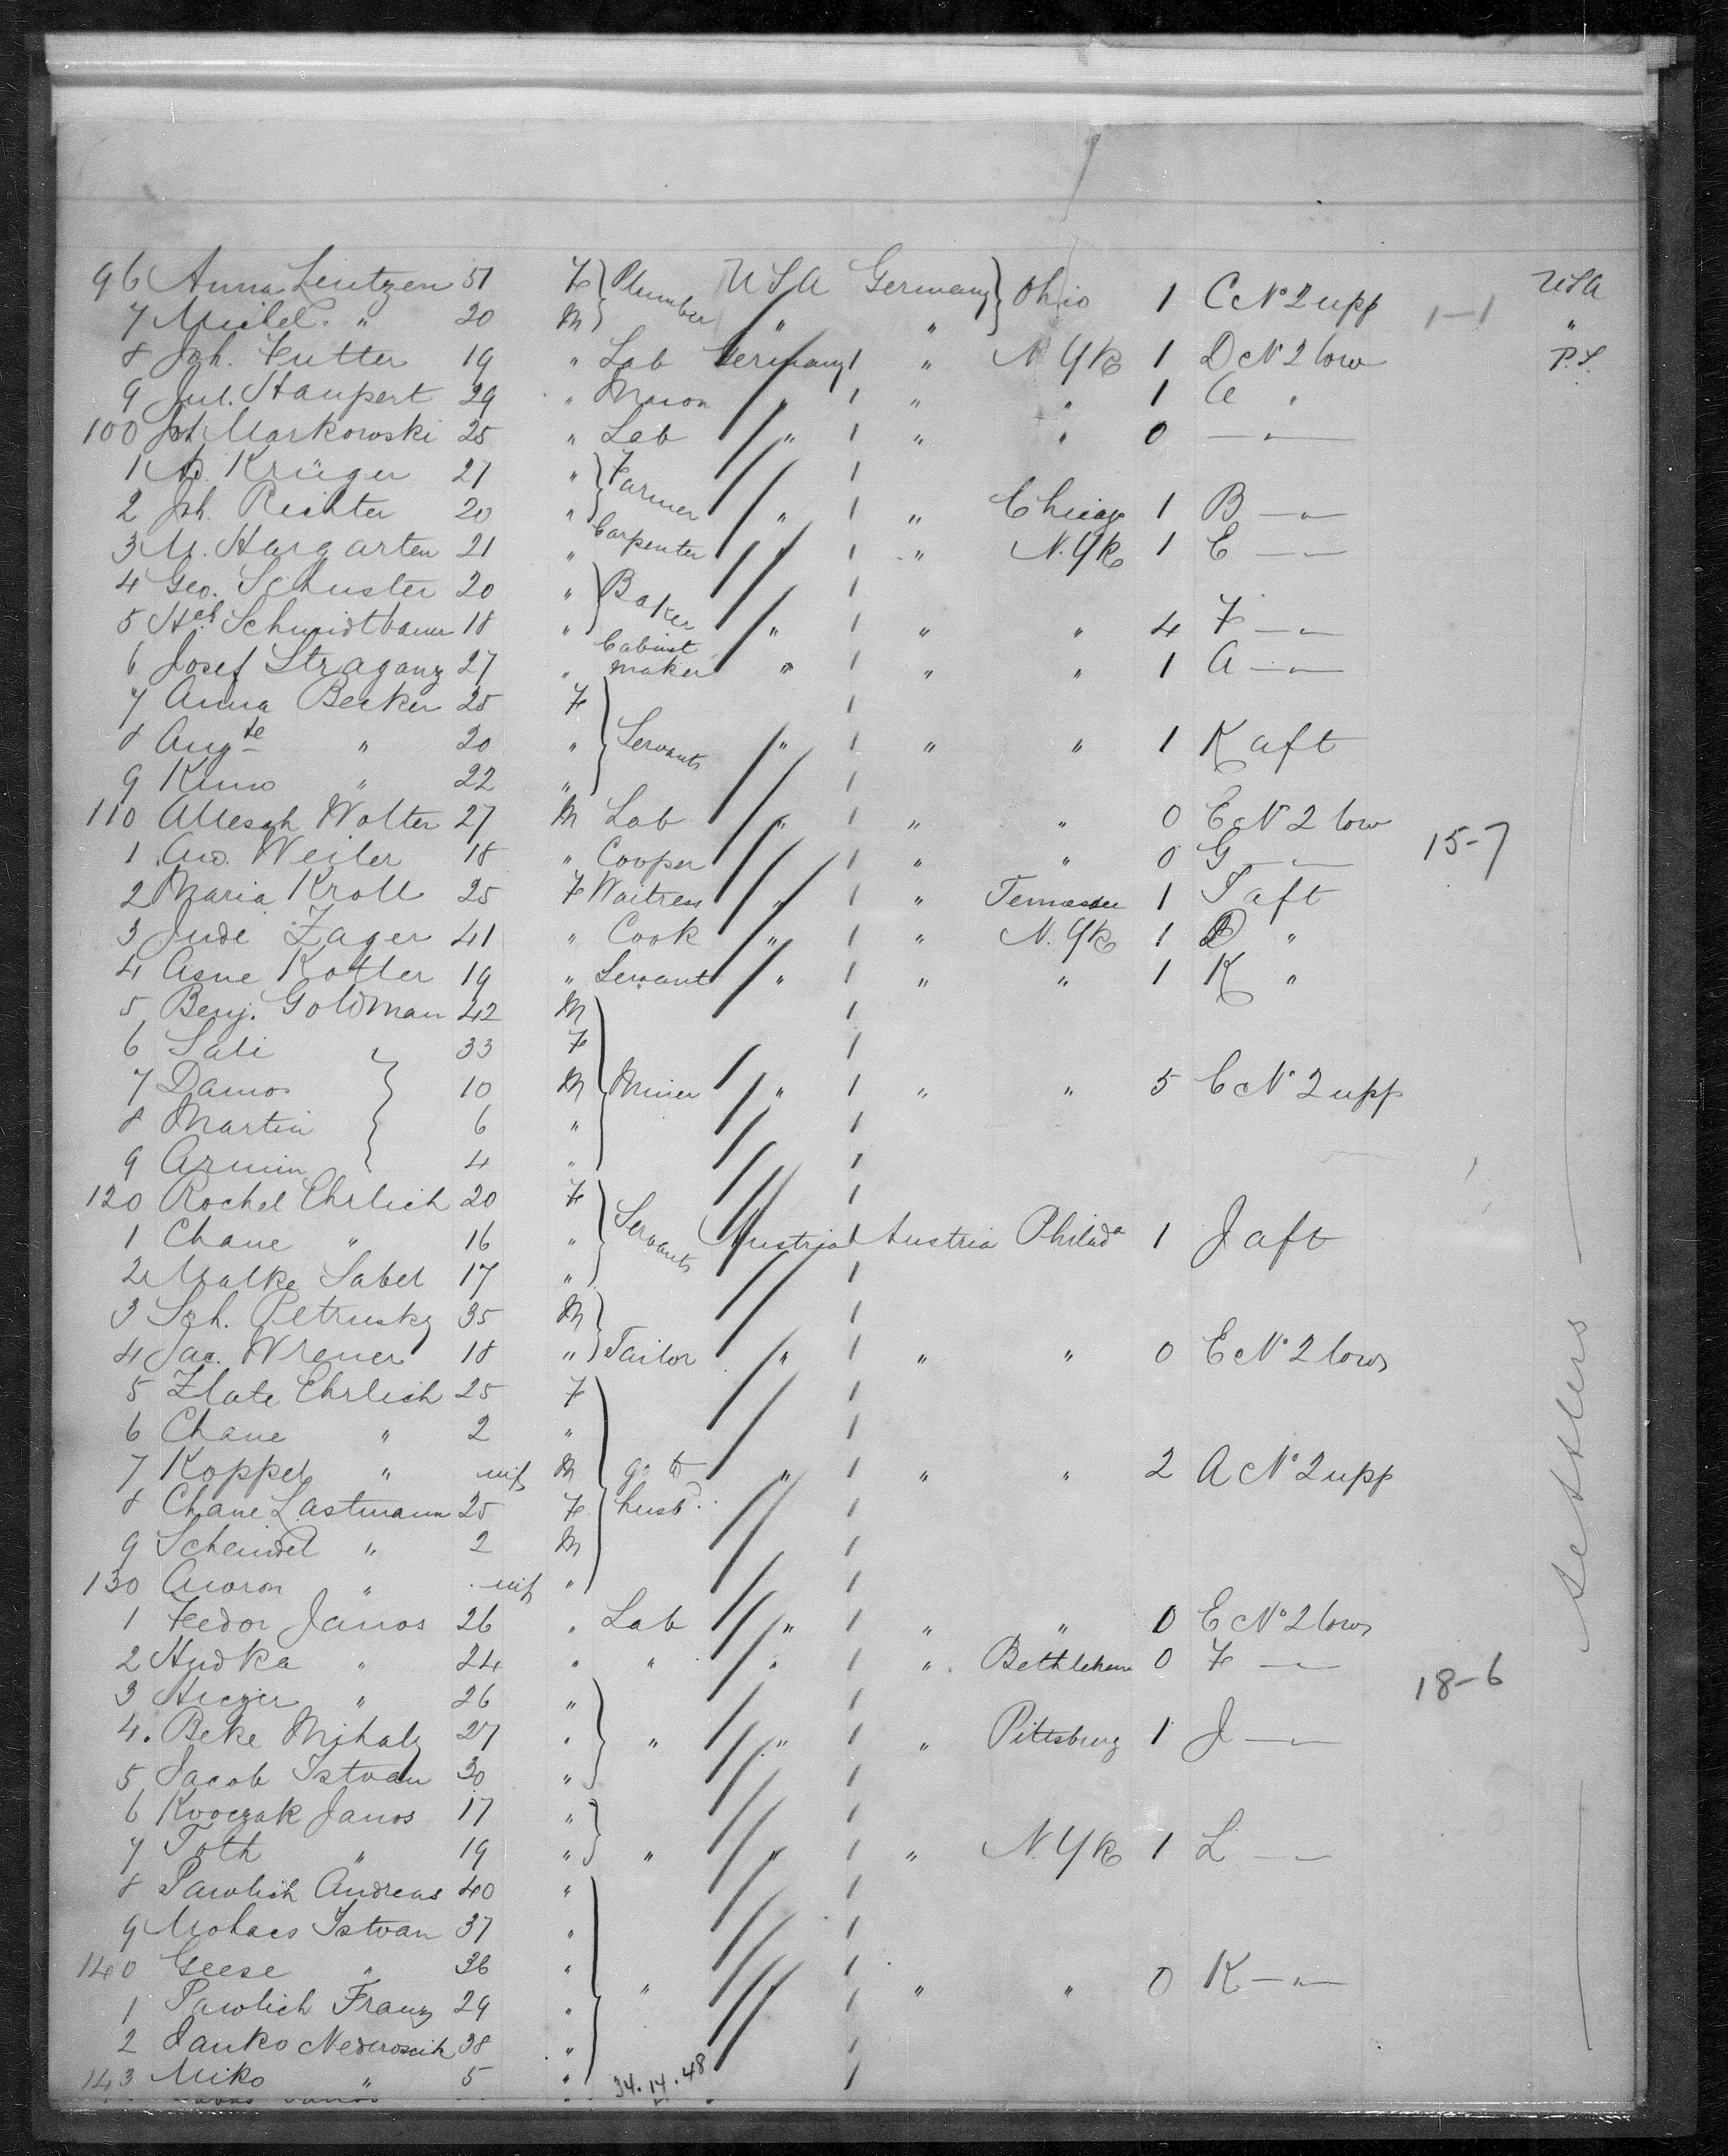 96 Anna Leutzen 51 F Plumber USA Germany Ohio 1 C No 2 upp USA
7 Michel " 20 M " " 1-1 "
8 Joh. Futter 19 " Lab Germany 1 " N. Yk 1 D No 2 low P.S.
9 Jul. Staupert 29 " Mason " 1 " " 1 A "
100 Joh Markowski 25 " Lab " 1 " " 0 — " —
1 Krüger 21 " Farmer 1
2 Joh. Richter 20 " " 1 " Chicago 1 B — " —
3 M. Hargarten 21 " Carpenter " 1 " N. Yk 1 E — " —
4 Geo. Schuster 20 " Baker 1
5 Hch Schmidtbauer 18 " " 1 " " 4 F — " —
6 Josef Straganz 27 " Cabinet maker " 1 " " 1 A — " —
7 Anna Becker 25 F 1
8 Augte " 20 " Servants " 1 " " 1 K aft
9 Kuno " 22 " 1
110 Wolter 27 M Lab " 1 " " 0 E No 2 low
1 Aw. Weiler 18 " Cooper 1 " " 0 G — " — 15-7
2 Maria Kroll 25 F Waitress " 1 " Tennessee 1 S aft
3 Jude Zager 41 " Cook " 1 " N. Yk 1 D "
4 Asne Kotler 19 " Servant " 1 " " 1 K "
5 Benj. Goldman 42 M 1
6 Sali 33 F 1
7 Damos 10 M Miner " 1 " " 5 C No 2 upp
8 Martin 6 " 1
9 Armin 4 " 1
120 Rochel Ehrlich 20 F 1
1 Chane " 16 " Servants Austria 1 Austria Philada 1 J aft
2 Malke Sabel 17 " 1
3 Joh. Petrusky 35 M 1
4 Jac. Wrener 18 " Tailor " 1 " " 0 E No 2 low
5 Zlate Ehrlich 25 F 1
6 Chane " 2 " 1
7 Koppel " inf M go to " 1 " " 2 A No 2 upp
8 Chane Lastmann 25 F husbd. 1
9 Scheindel " 2 M 1
130 Awron " inf " 1
1 Fedor Janos 26 " Lab " 1 " " 0 E No 2 low
2 Hudka " 24 " " " 1 " Bethlehem 0 F — " —
3 Hieger " 26 " 1 18-6
4. Beke Mihaly 27 " " " 1 " Pittsburg 1 J — " —
5 Jacob Istvan 30 " 1
6 Kvoczak Janos 17 " 1
7 Toth " 19 " " " 1 " N. Yk 1 L — " —
8 Pawlich Andreas 40 " 1
9 Mohacs Istvan 37 " 1
140 Geese " 36 " " 1 " " 0 K — " —
1 Pawlich Franz 29 " 1
2 Janko 38 " 1
143 Miko " 5 " 34.14.48 1
settlers